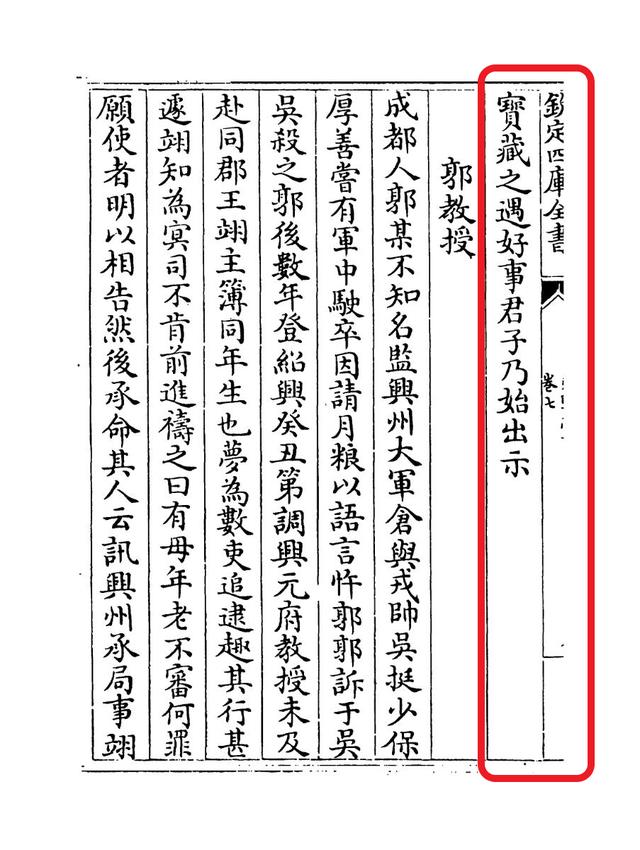 欽定四庫全書
卷七
寶藏之遇好事君子乃始出示
郭教授
成都人郭某不知名監興州大軍倉與戎帥吳挺少保
厚善嘗有軍中駛卒因請月粮以語言忤郭郭訴于吳
吳殺之郭後數年登紹興癸丑第調興元府教授未及
赴同郡王翊主簿同年生也夢為數吏追逮趣其行甚
遽翊知為㝠司不肯前進禱之曰有母年老不審何罪
願使者明以相告然後承命其人云訊興州承局事翊